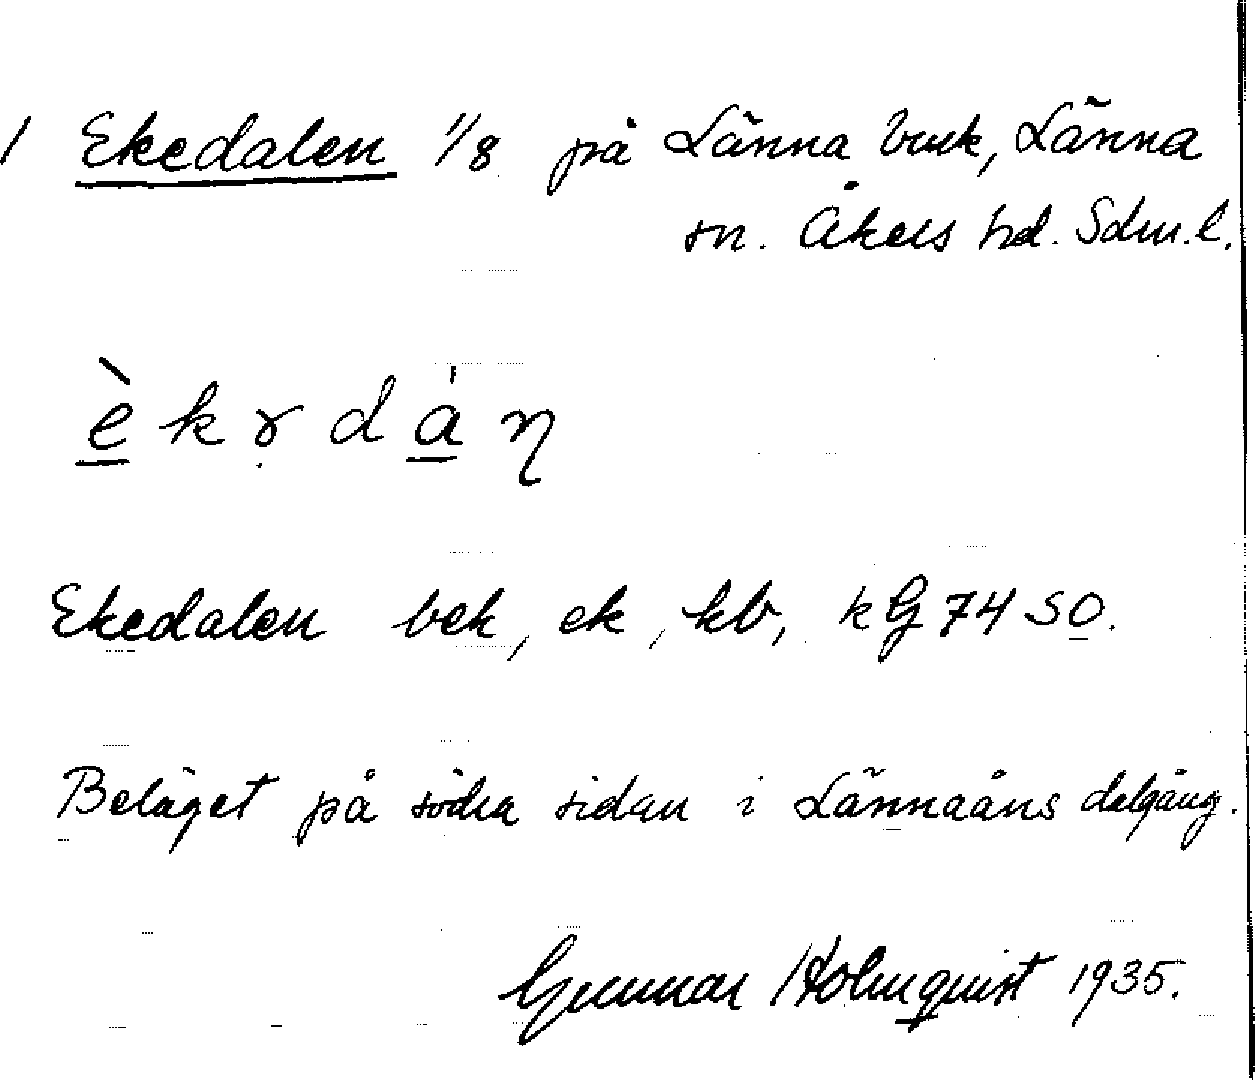 / Ekedalen 1/8 på Länna bruk, Länna
sn. Åkers hd. Sdm.l.
è k ɤ d a̍ η
Ekedalen bek, ek, kb, kG 74 SO.
Beläget på södra sidan i Lännaåns dalgång.
Gunnar Holmquist 1935.